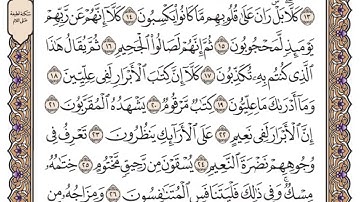 ١٣ كَلَّا ۖ بَلْ ۜ رَانَ عَلَىٰ قُلُوبِهِم مَّا كَانُوا۟ يَكْسِبُونَ ١٤ كَلَّآ إِنَّهُمْ عَن رَّبِّهِمْ
يَوْمَئِذٍ لَّمَحْجُوبُونَ ١٥ ثُمَّ إِنَّهُمْ لَصَالُوا۟ ٱلْجَحِيمِ ١٦ ثُمَّ يُقَالُ هَٰذَا
ٱلَّذِى كُنتُم بِهِۦ تُكَذِّبُونَ ١٧ كَلَّآ إِنَّ كِتَٰبَ ٱلْأَبْرَارِ لَفِى عِلِّيِّينَ ١٨
وَمَآ أَدْرَىٰكَ مَا عِلِّيُّونَ ١٩ كِتَٰبٌ مَّرْقُومٌ ٢٠ يَشْهَدُهُ ٱلْمُقَرَّبُونَ ٢١
إِنَّ ٱلْأَبْرَارَ لَفِى نَعِيمٍ ٢٢ عَلَى ٱلْأَرَآئِكِ يَنظُرُونَ ٢٣ تَعْرِفُ فِى
وُجُوهِهِمْ نَضْرَةَ ٱلنَّعِيمِ ٢٤ يُسْقَوْنَ مِن رَّحِيقٍ مَّخْتُومٍ ٢٥ خِتَٰمُهُۥ
مِسْكٌ ۚ وَفِى ذَٰلِكَ فَلْيَتَنَافَسِ ٱلْمُتَنَٰفِسُونَ ٢٦ وَمِزَاجُهُۥ مِن